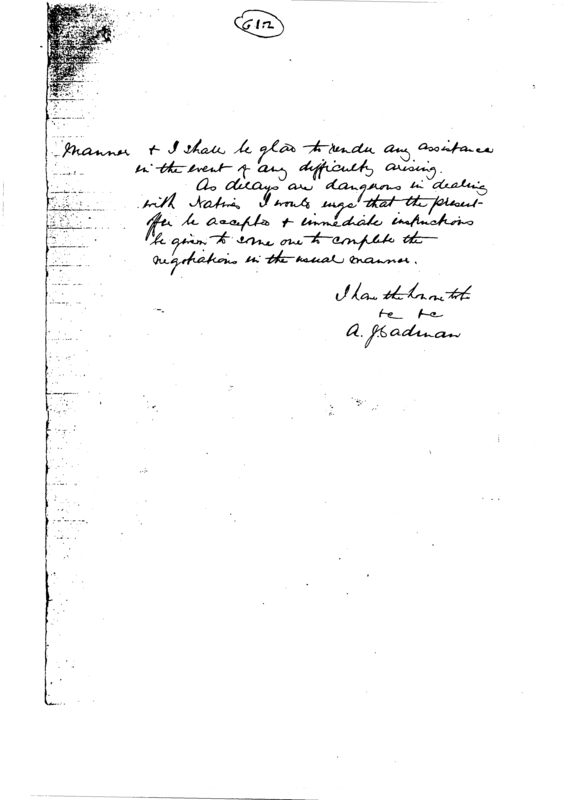 manner & I shall be glad to render any assistance
in the event of any difficulty arising.
As delays are dangerous in dealing
with Natives I would urge that the present
offer be accepted & immediate instructions
be given to some one to complete the
negotiations in the usual manner.
I have the honor to be
&c &c
A. J. Cadman